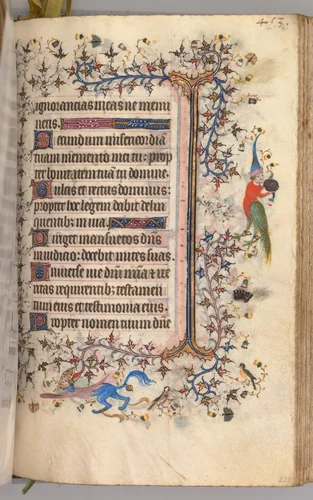 ignorancias meas ne memi
neris.
Secundum misericordiā
tuam memento mei tu: prop
ter bonitatem tuā domine.
Dulcis et rectus dominus:
propter hoc legem dabit delin
quentibȝ in via.
Diriget mansuetos
in iudicio: docebit mites suas.
Universe vie dn̄i mīa & ve
ritas requirentibȝ testamen
tum eius et testimonia eius.
Propter nomen tuum dn̄e